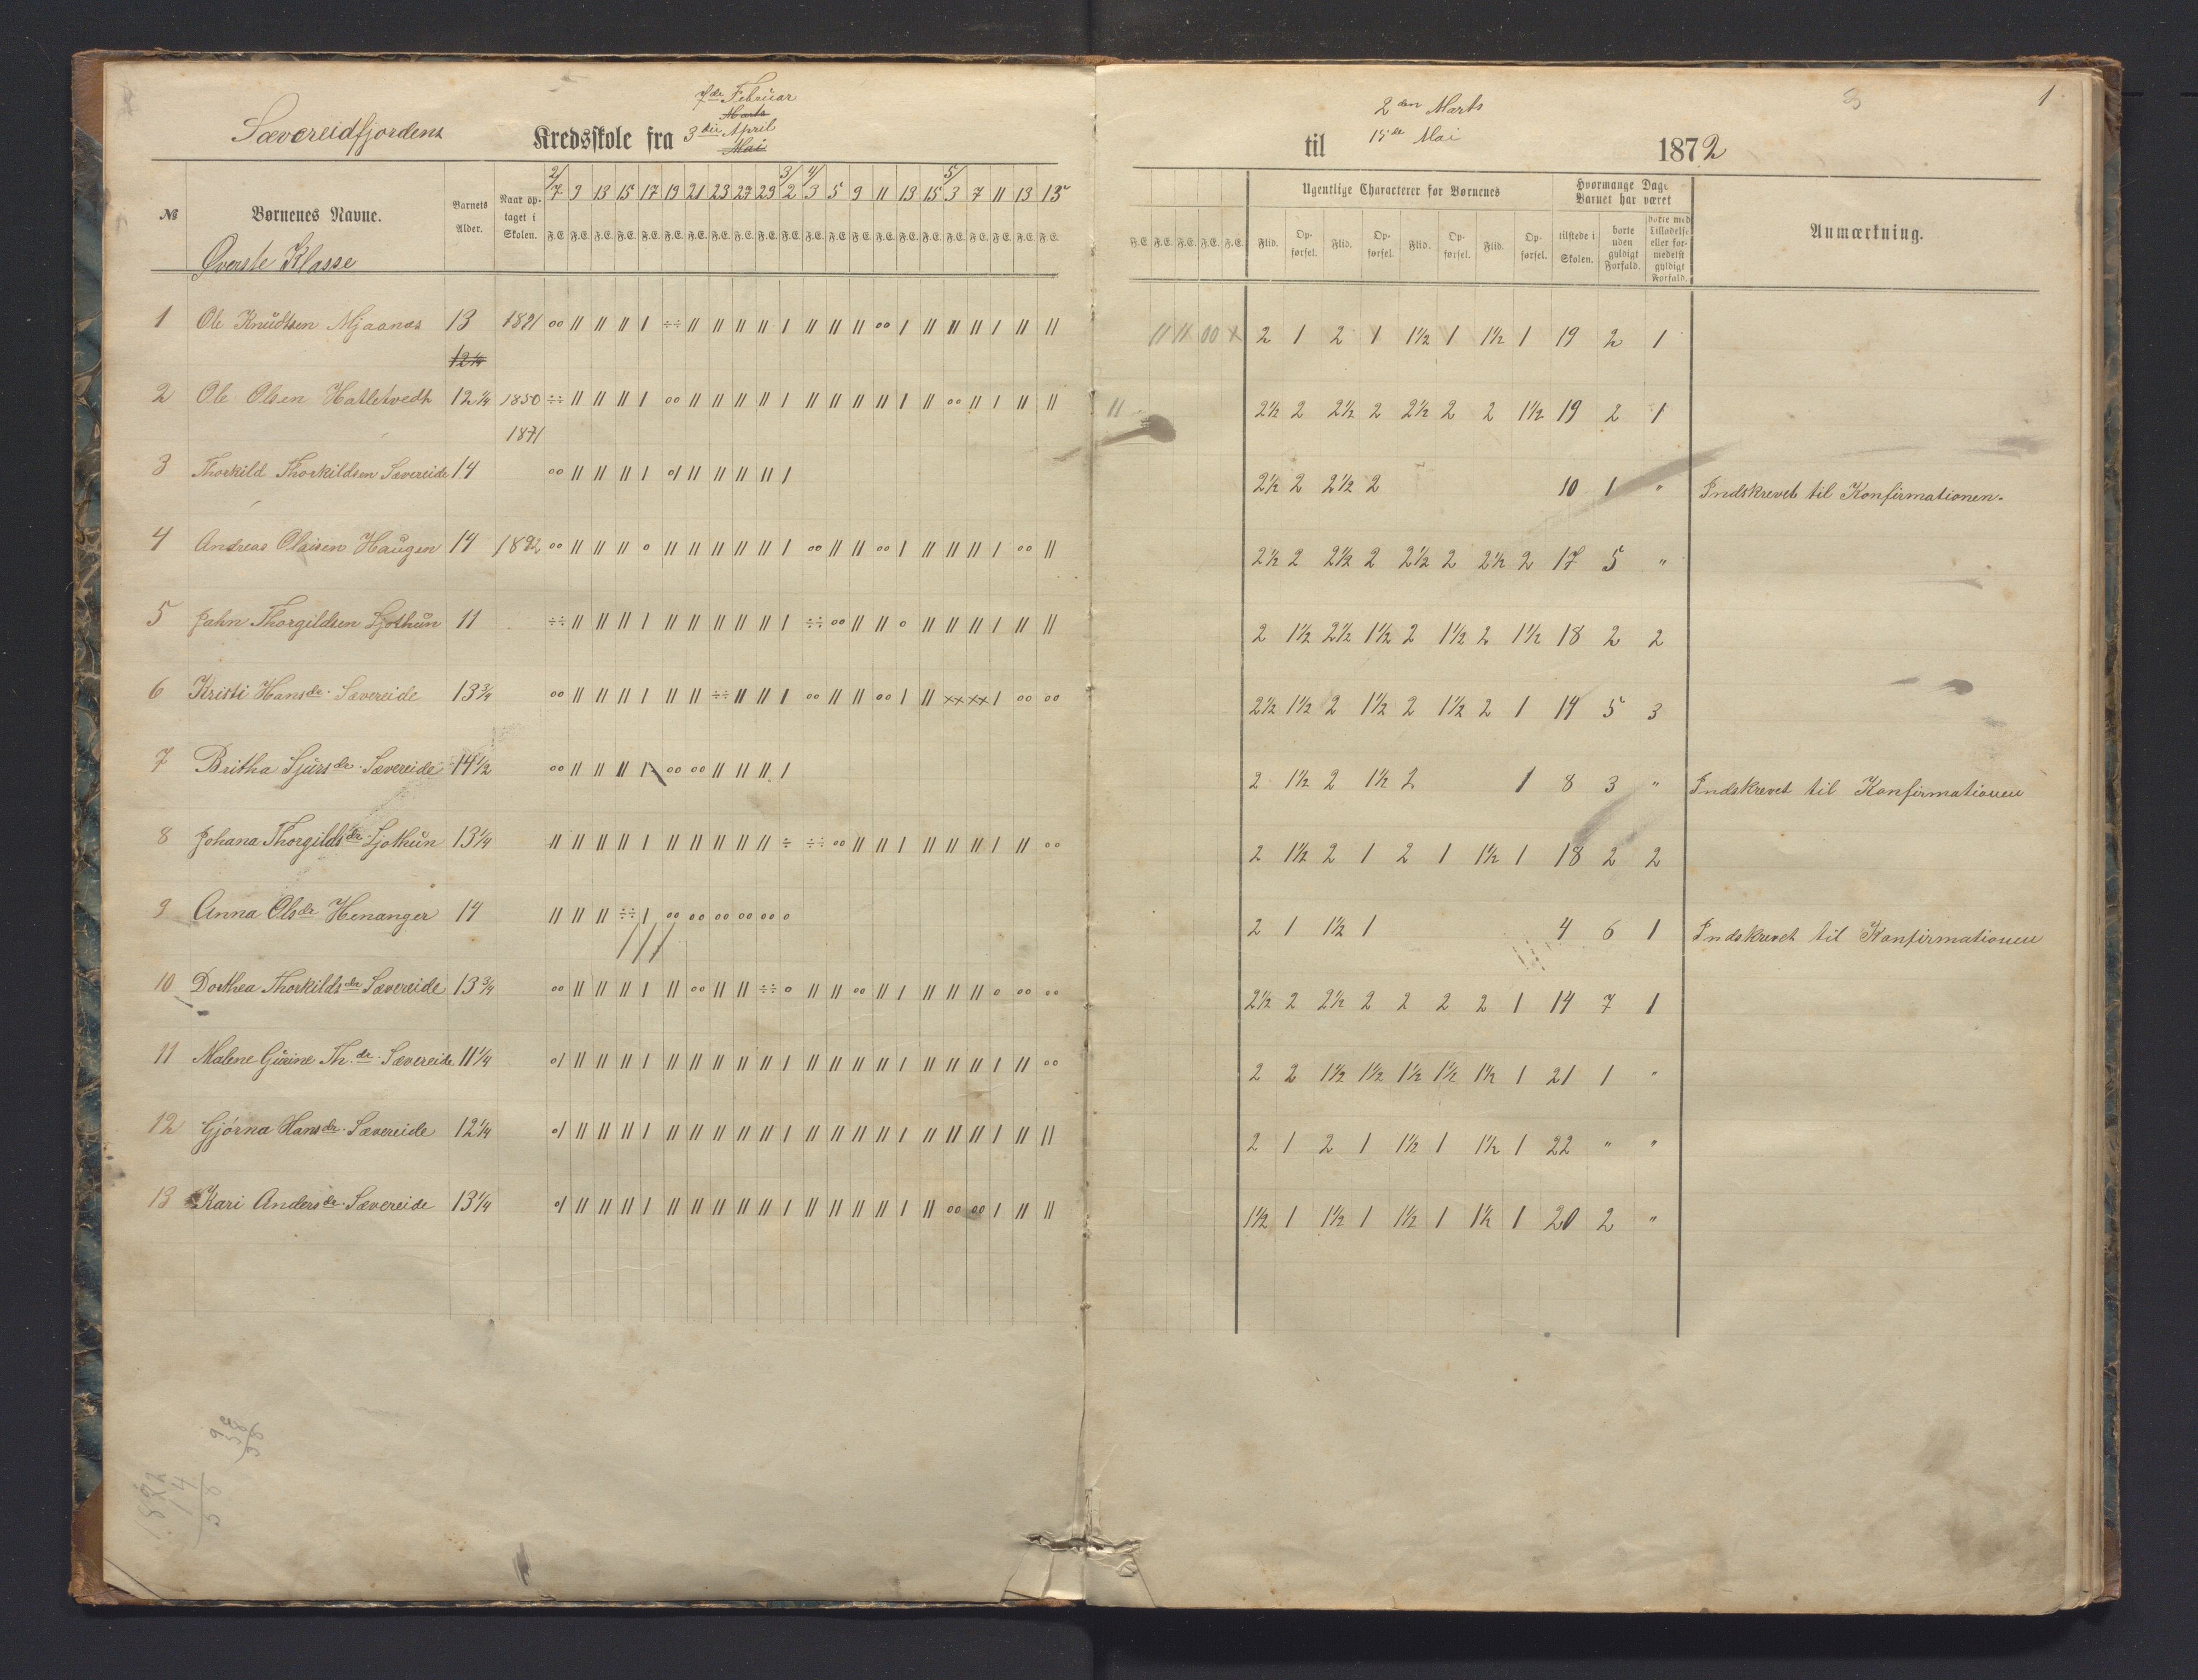 Sævereidfjordens Kredsskole fra 7de Februar
Marts
3die April
Mai
til 2den Marts
15de Mai
1872
1
№ Børnenes Navne. Barnets Alder. Naar optaget i Skolen.
2/7 9 13 15 17 19 21 23 27 29 3/2 4/3 5 9 11 13 15 5/3 7 11 13 15
F.E. F.E. F.E. F.E. F.E. F.E. F.E. F.E. F.E. F.E. F.E. F.E. F.E. F.E. F.E. F.E. F.E. F.E. F.E. F.E. F.E. F.E.
F.E. F.E. F.E. F.E. F.E.
Ugentlige Characterer for Børnenes
Flid. Opførsel. Flid. Opførsel. Flid. Opførsel. Flid. Opførsel.
Hvormange Dage Barnet har været
tilstede i Skolen. borte uden gyldigt Forfald. borte med Tilladelse eller formedelst gyldigt Forfald.
Anmærkning.
Øverste Klasse
1 Ole Knudtsen Mjaanæs 13 1871 2 1 2 1 1½ 1 1½ 1 19 2 1
12¼
2 Ole Olsen Hatletvedt 12¼ 1850 2½ 2 2½ 2 2½ 2 2 1½ 19 2 1
1871
3 Thorkild Thorkildsen Sævereide 14 2½ 2 2½ 2 10 1 " Indskrevet til Konfirmationen.
4 Andreas Olaisen Haugen 14 1872 2½ 2 2½ 2 2½ 2 2½ 2 17 5 "
5 Jahn Thorgildsen Ljothun 11 2 1½ 2½ 1½ 2 1½ 2 1½ 18 2 2
6 Kristi Hansdr. Sævereide 13¾ 2½ 1½ 2 1½ 2 1½ 2 1 14 5 3
7 Britha Sjursdr. Sævereide 14½ 2 1½ 2 1½ 2 1 8 3 " Indskrevet til Konfirmationen
8 Johana Thorgildsdr. Ljothun 13¼ 2 1½ 2 1 2 1 1½ 1 18 2 2
9 Anna Olsdr Henanger 14 2 1 1½ 1 4 6 1 Indskrevet til Konfirmationen
10 Dorthea Thorkildsdr Sævereide 13¾ 2½ 2 2½ 2 2 2 2 1 14 7 1
11 Malene Gurine Th.dr. Sævereide 11¼ 2 2 1½ 1½ 1½ 1½ 1½ 1 21 1 "
12 Gjörna Hansdr. Sævereide 12¼ 2 1 2 1 1½ 1 1½ 1 22 " "
13 Kari Andersdr. Sævereide 13¼ 1½ 1 1½ 1 1½ 1 1½ 1 20 2 "